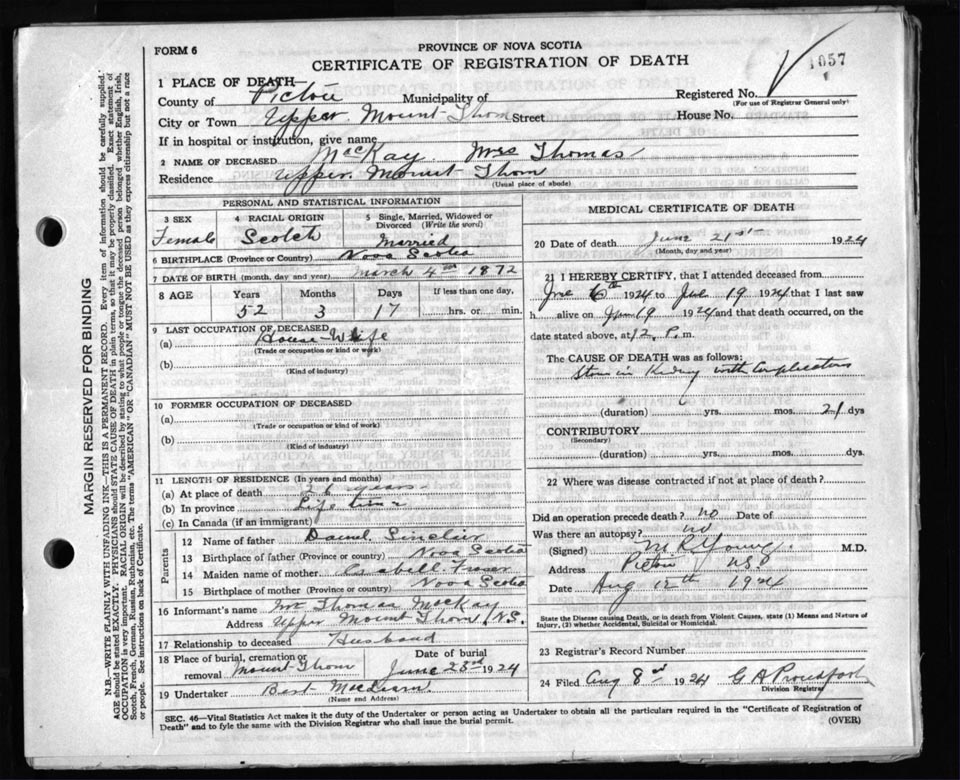 FORM 6
PROVINCE OF NOVA SCOTIA
CERTIFICATE OF REGISTRATION OF DEATH
1057
1 PLACE OF DEATH—
County of Pictou Municipality of
Registered No.
(For use of Registrar General only)
City or Town Upper Mount Thom Street House No.
If in hospital or institution, give name
2 NAME OF DECEASED MacKay Mrs Thomas
Residence Upper Mount Thom
(Usual place of abode)
PERSONAL AND STATISTICAL INFORMATION
3 SEX Female
4 RACIAL ORIGIN Scotch
5 Single, Married, Widowed or Divorced (Write the word) Married
6 BIRTHPLACE (Province or Country) Nova Scotia
7 DATE OF BIRTH (month, day and year) March 4th 1872
8 AGE Years Months Days If less than one day,
52 3 17 hrs. or min.
9 LAST OCCUPATION OF DECEASED
(a) House-Wife
(Trade or occupation or kind of work)
(b)
(Kind of industry)
10 FORMER OCCUPATION OF DECEASED
(a)
(Trade or occupation or kind of work)
(b)
(Kind of industry)
11 LENGTH OF RESIDENCE (In years and months)
(a) At place of death 26 years
(b) In province Life time
(c) In Canada (if an immigrant)
Parents
12 Name of father Daniel Sinclair
13 Birthplace of father (Province or country) Nova Scotia
14 Maiden name of mother Fraser
15 Birthplace of mother (Province or country) Nova Scotia
16 Informant's name Mr Thomas MacKay
Address Upper Mount Thom, N.S.
17 Relationship to deceased Husband
18 Place of burial, cremation or removal Mount Thom
Date of burial June 23rd 1924
19 Undertaker Best
(Name and Address)
MEDICAL CERTIFICATE OF DEATH
20 Date of death June 21st 1924
(Month, day and year)
21 I HEREBY CERTIFY, that I attended deceased from
6th 1924 to 19 1924 that I last saw
h alive on June 19 1924 and that death occurred, on
date stated above, at 12 P. m.
The CAUSE OF DEATH was as follows:
Stone in Kidney with Complications
(duration) yrs. mos. 21 dys
CONTRIBUTORY
(Secondary)
(duration) yrs. mos. dys.
22 Where was disease contracted if not at place of death?
Did an operation precede death? no Date of
Was there an autopsy? no
(Signed) M R Young M.D.
Address Pictou N.S.
Date Aug 12th 1924
State the Disease causing Death, or in death from Violent Causes, state (1) Means and Nature of
Injury, (2) whether Accidental, Suicidal or Homicidal.
23 Registrar's Record Number
24 Filed Aug 8 1924 G A Proudfoot
Division Registrar
SEC. 46—Vital Statistics Act makes it the duty of the Undertaker or person acting as Undertaker to obtain all the particulars required in the "Certificate of Registration of
Death" and to fyle the same with the Division Registrar who shall issue the burial permit. (OVER)
MARGIN RESERVED FOR BINDING
N.B.—WRITE PLAINLY WITH UNFADING INK—THIS IS A PERMANENT RECORD. Every item of information should be carefully supplied.
AGE should be stated EXACTLY. PHYSICIANS should STATE CAUSE OF DEATH in plain terms, so that it may be properly classified. Exact statement of
OCCUPATION is very important. RACIAL ORIGIN will be described by stating to what people or tongue the deceased person belonged whether English, Irish,
Scotch, French, German, Russian, Ruthenian, etc. The terms "AMERICAN" OR "CANADIAN" MUST NOT BE USED as they express citizenship but not a race
or people. See instructions on back of Certificate.